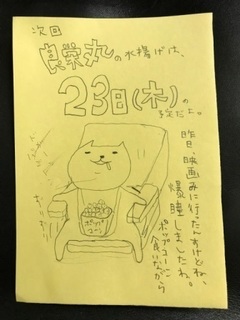 次回
良栄丸の水揚げは、
23日(木)の
予定だよ。
昨日、映画みに行ったんすけどね、
爆睡しましたね。
ポップコーン食いながら
ポップ
コーン